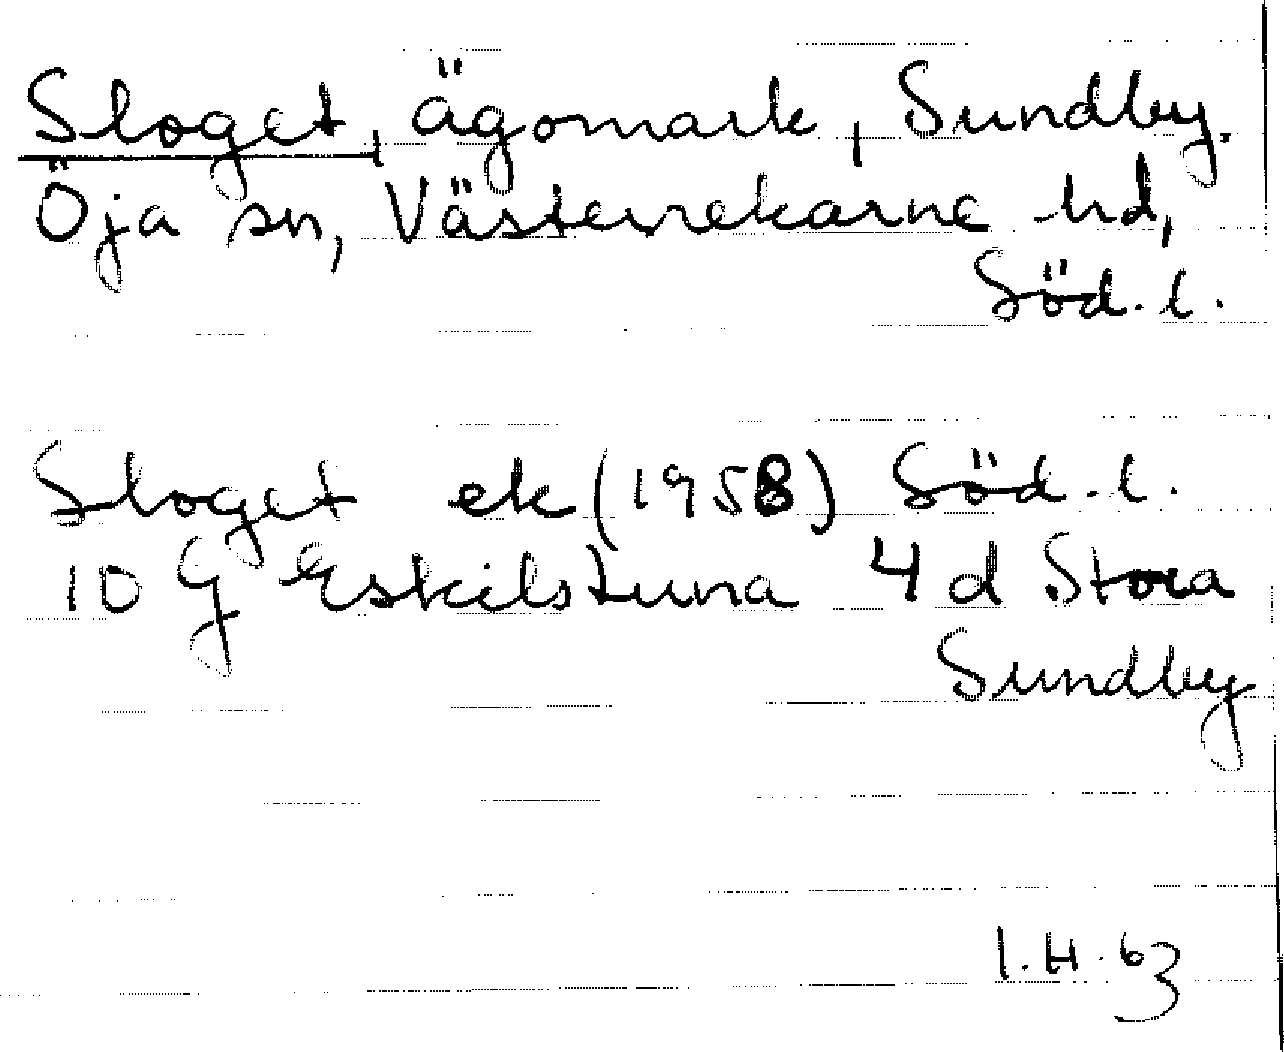 Sloget, ägomark, Sundby.
Öja sn, Västerrekarne hd,
Söd. l.
Sloget ek (1958) Söd. l.
10 G Eskilstuna 4 d Stora
Sundby
I. H. 63